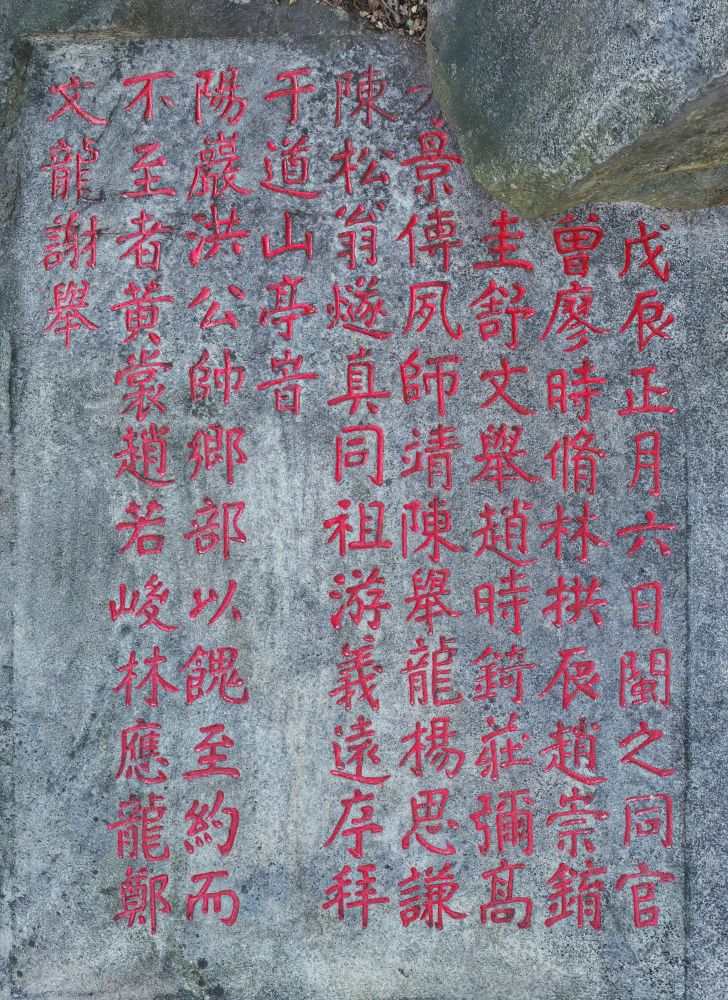 戊辰正月六日閩之同官
曾廖時脩林拱辰趙崇錥
圭舒文舉趙時錡莊彌髙
景傳夙師靖陳舉龍楊思謙
陳松翁燧真同祖游義遠序拜
于道山亭音
陽巖洪公帥鄉部以餽至約而
不至者黃裳趙若峻林應龍鄭
文龍謝舉